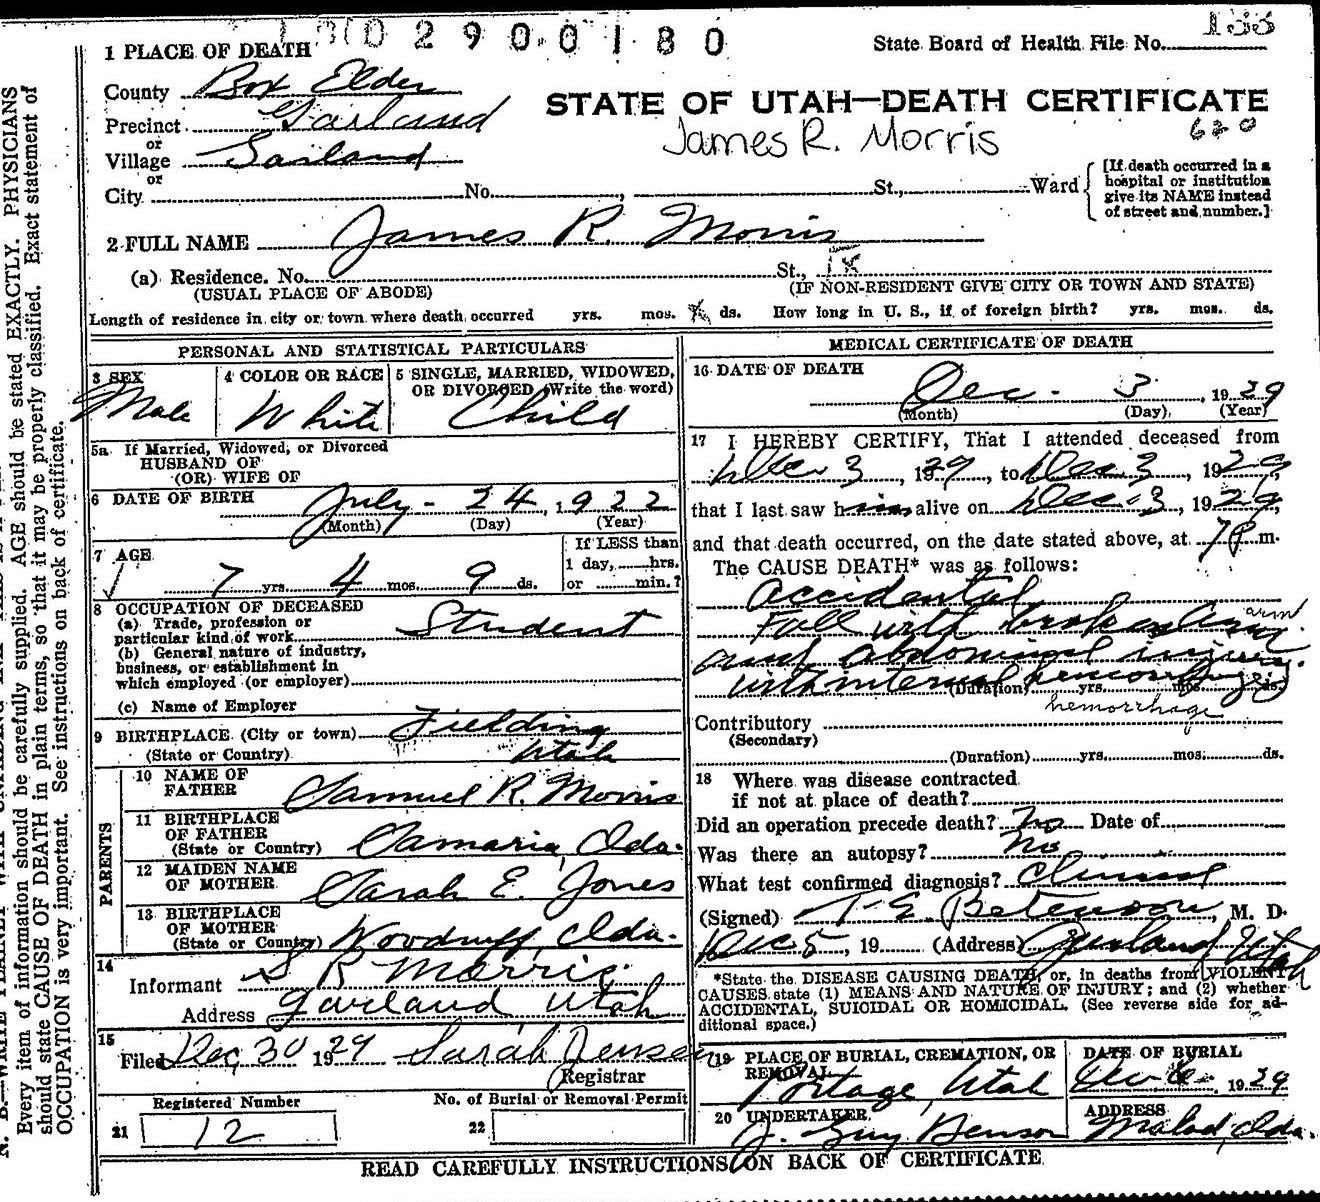 2900180
State Board of Health File No.
1 PLACE OF DEATH
County Box Elder
STATE OF UTAH—DEATH CERTIFICATE
Precinct Garland
James R. Morris
620
or
Village Garland
or
City No. , St., Ward
[If death occurred in a
hospital or institution
give its NAME instead
of street and number.]
2 FULL NAME James R. Morris
(a) Residence. No. St.,
(USUAL PLACE OF ABODE) (IF NON-RESIDENT GIVE CITY OR TOWN AND STATE)
Length of residence in city or town where death occurred yrs. mos. ds. How long in U. S., if of foreign birth? yrs. mos. ds.
PERSONAL AND STATISTICAL PARTICULARS
3 SEX
Male
4 COLOR OR RACE
White
5 SINGLE, MARRIED, WIDOWED,
OR DIVORCED (Write the word)
Child
5a If Married, Widowed, or Divorced
HUSBAND OF
(OR) WIFE OF
6 DATE OF BIRTH July - 24, 1922
(Month) (Day) (Year)
7 AGE
7 yrs. 4 mos. 9 ds.
If LESS than
1 day, hrs.
or min.?
8 OCCUPATION OF DECEASED
(a) Trade, profession or
particular kind of work Student
(b) General nature of industry,
business, or establishment in
which employed (or employer)
(c) Name of Employer
9 BIRTHPLACE (City or town) Fielding
(State or Country) Utah
PARENTS
10 NAME OF
FATHER Samuel R. Morris
11 BIRTHPLACE
OF FATHER
(State or Country) Samaria, Ida.
12 MAIDEN NAME
OF MOTHER Sarah E. Jones
13 BIRTHPLACE
OF MOTHER
(State or Country) Woodruff, Ida.
14
Informant S R Morris
Address Garland Utah
15
Filed Dec 30 1929 Sarah Jensen
Registrar
Registered Number
21 12
No. of Burial or Removal Permit
22
MEDICAL CERTIFICATE OF DEATH
16 DATE OF DEATH
Dec. 3, 1929
(Month) (Day) (Year)
17 I HEREBY CERTIFY, That I attended deceased from
Dec 3, 1929, to Dec 3, 1929,
that I last saw him alive on Dec. 3, 1929,
and that death occurred, on the date stated above, at 7 P m.
The CAUSE DEATH* was as follows:
Accidental
Fall with broken arm arm
and abdominal injury.
with internal hemorrhage
(Duration) yrs. mos. ds.
hemorrhage
Contributory
(Secondary)
(Duration) yrs. mos. ds.
18 Where was disease contracted
if not at place of death?
Did an operation precede death? No Date of
Was there an autopsy? No
What test confirmed diagnosis? Clinical
(Signed) T. E. Betenson, M. D.
Dec 5, 19 (Address) Garland, Utah
*State the DISEASE CAUSING DEATH, or, in deaths from VIOLENT
CAUSES state (1) MEANS AND NATURE OF INJURY; and (2) whether
ACCIDENTAL, SUICIDAL OR HOMICIDAL. (See reverse side for ad-
ditional space.)
19 PLACE OF BURIAL, CREMATION, OR
REMOVAL
Portage, Utah
DATE OF BURIAL
Dec 6 1929
20 UNDERTAKER
J. Guy Benson
ADDRESS
Malad, Ida.
READ CAREFULLY INSTRUCTIONS ON BACK OF CERTIFICATE
Every item of information should be carefully supplied. AGE should be stated EXACTLY. PHYSICIANS
should state CAUSE OF DEATH in plain terms, so that it may be properly classified. Exact statement of
OCCUPATION is very important. See instructions on back of certificate.